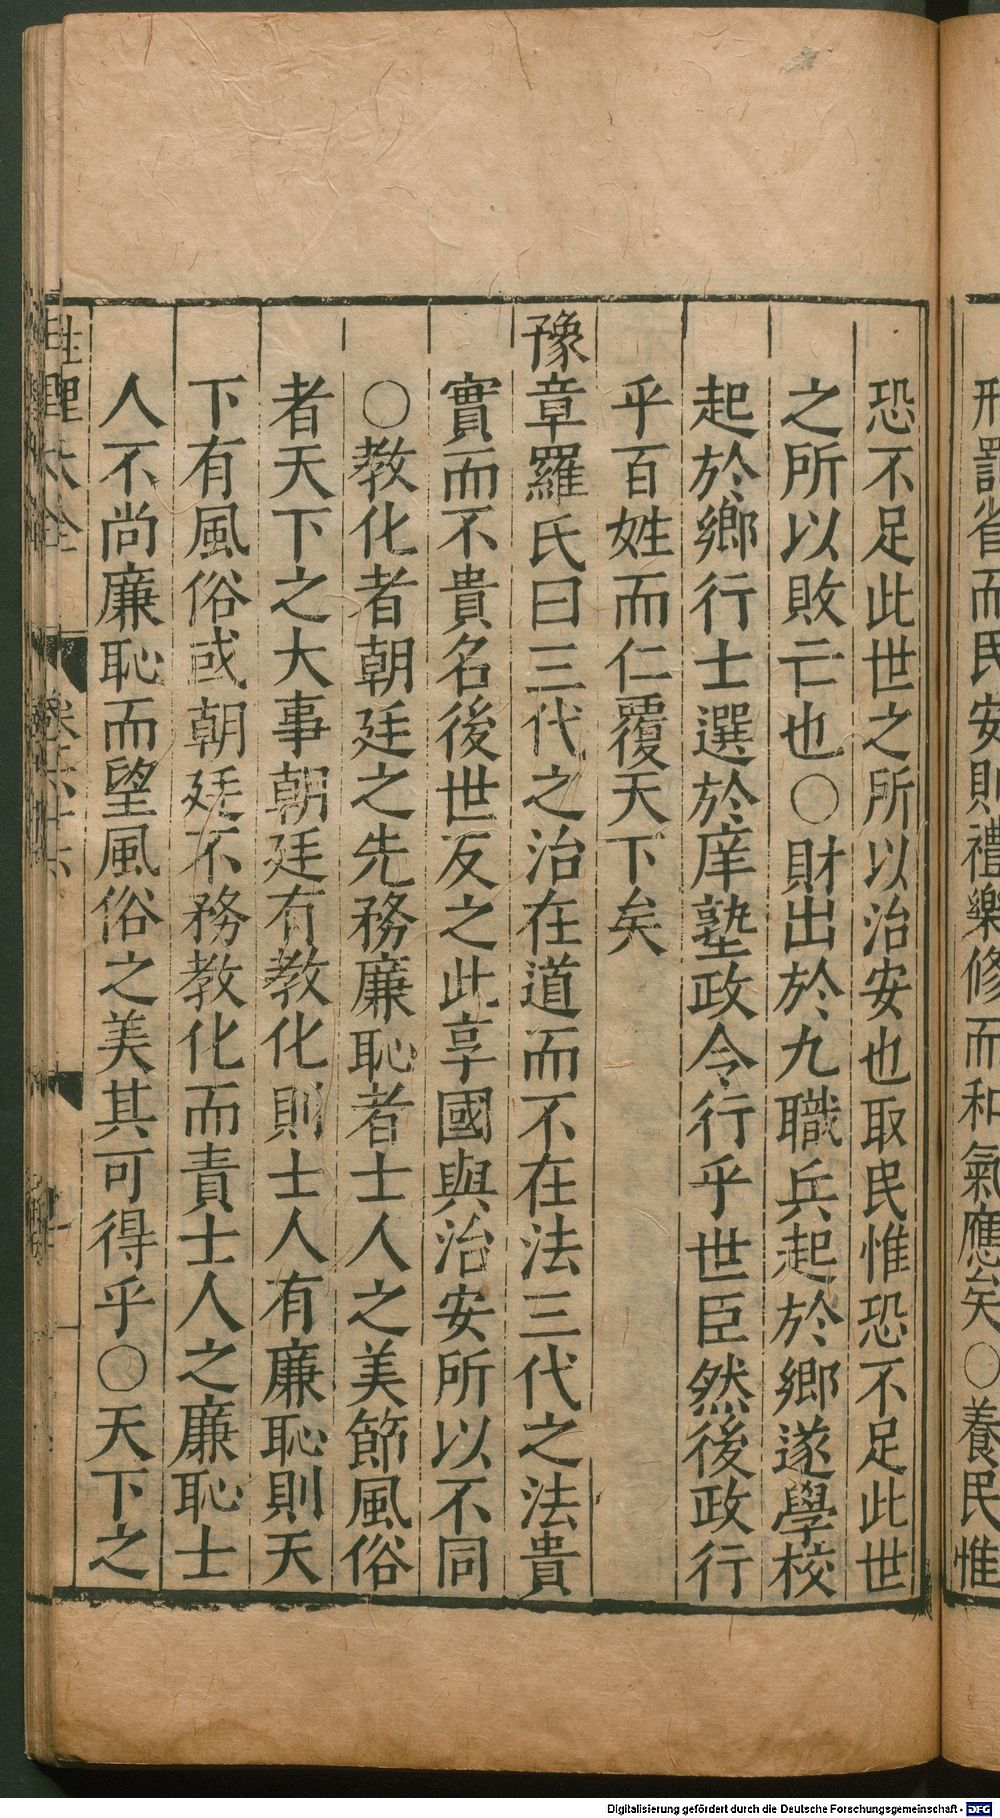 刑罰省而民安則禮樂修而和氣應矣○養民惟
恐不足此世之所以治安也取民惟恐不足此世
之所以敗亡也○財出於九職兵起於鄉遂學校
起於鄉行士選於庠塾政令行乎世臣然後政行
乎百姓而仁覆天下矣
豫章羅氏曰三代之治在道而不在法三代之法貴
實而不貴名後世反之此享國與治安所以不同
○教化者朝廷之先務廉恥者士人之美節風俗
者天下之大事朝廷有教化則士人有廉恥則天
下有風俗或朝廷不務教化而責士人之廉恥士
人不尚廉恥而望風俗之美其可得乎○天下之
性理大全 卷六十六
Digitalisierung gefördert durch die Deutsche Forschungsgemeinschaft - DFG